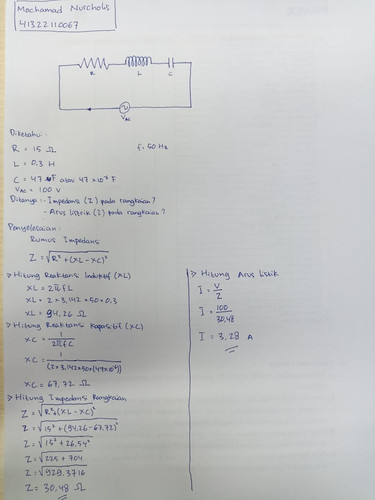 Mochamad Nurcholis
41322110067
R L C
VAC
Diketahui:
R = 15 Ω f: 50 Hz
L = 0.3 H
C = 47 µF atau 47 x 10⁻⁶ F
VAC = 100 V
Ditanya: - Impedansi (Z) pada rangkaian?
- Arus listrik (I) pada rangkaian?
Penyelesaian:
Rumus Impedansi
Z = √R² + (XL - XC)²
> Hitung Reaktansi Induktif (XL)
XL = 2πfL
XL = 2 x 3,142 x 50 x 0.3
XL = 94,26 Ω
> Hitung Reaktansi Kapasitif (XC)
XC = 1/2πfC
XC = 1/(2 x 3,142 x 50 x (47 x 10⁻⁶))
XC = 67,72 Ω
> Hitung Impedansi Rangkaian
Z = √R² + (XL - XC)²
Z = √15² + (94,26 - 67,72)²
Z = √15² + 26,54²
Z = √225 + 704
Z = √929.3716
Z = 30,48 Ω
> Hitung Arus listik
I = V/Z
I = 100/30,48
I = 3,28 A